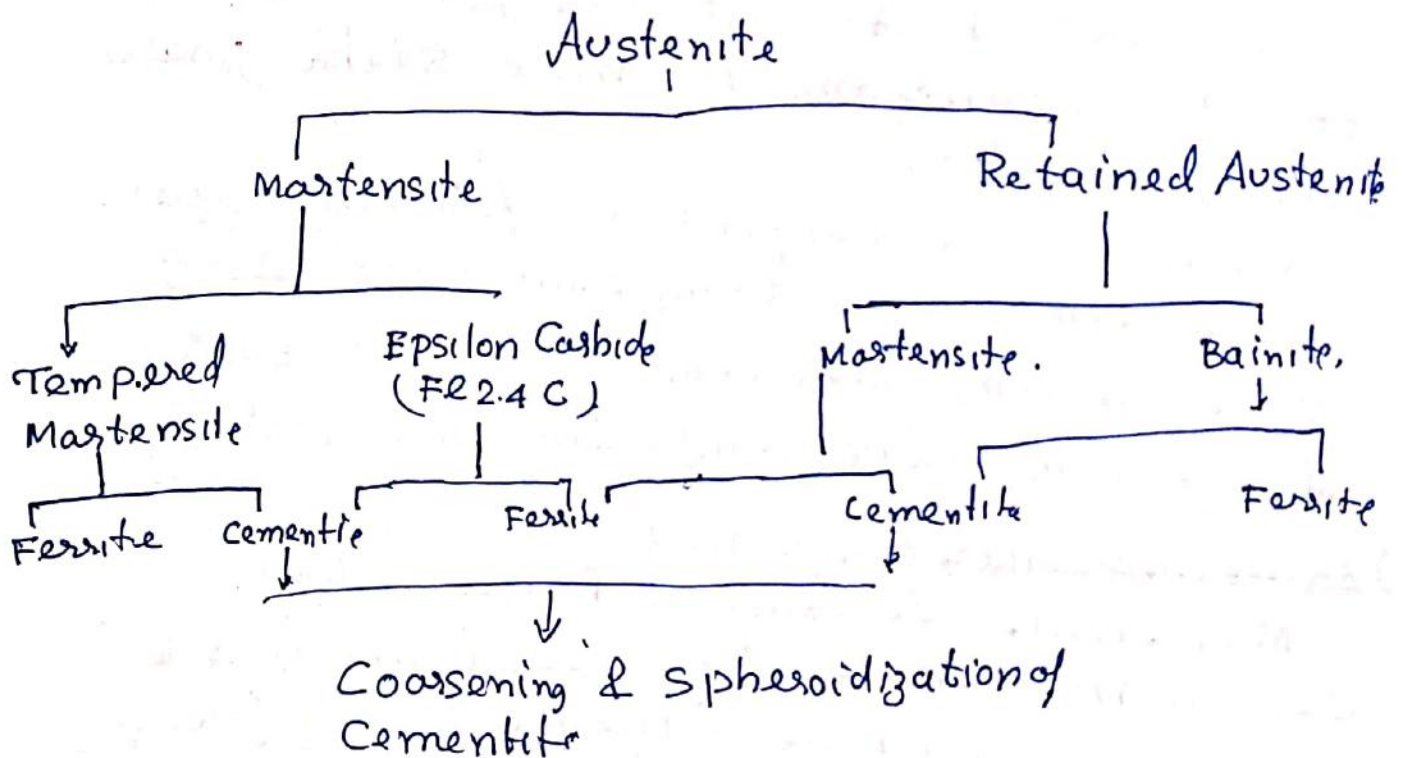 Austenite
Martensite
Retained Austenite
Tempered
Martensite
Epsilon Carbide
(Fe 2.4 C)
Martensite.
Bainite.
Ferrite
Cementie
Ferrite
Cementite
Ferrite
Coarsening & Spheroidization of
Cementite